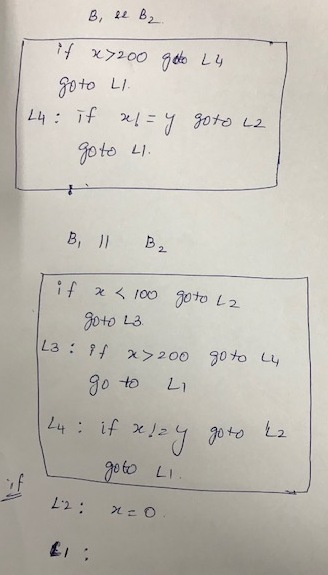 B1 && B2
if x>200 goto L4
goto L1.
L4: if x!=y goto L2
goto L1.
B1 || B2
if x < 100 goto L2
goto L3
L3: if x>200 goto L4
go to L1
L4: if x!=y goto L2
goto L1.
if
L2: x=0.
L1: